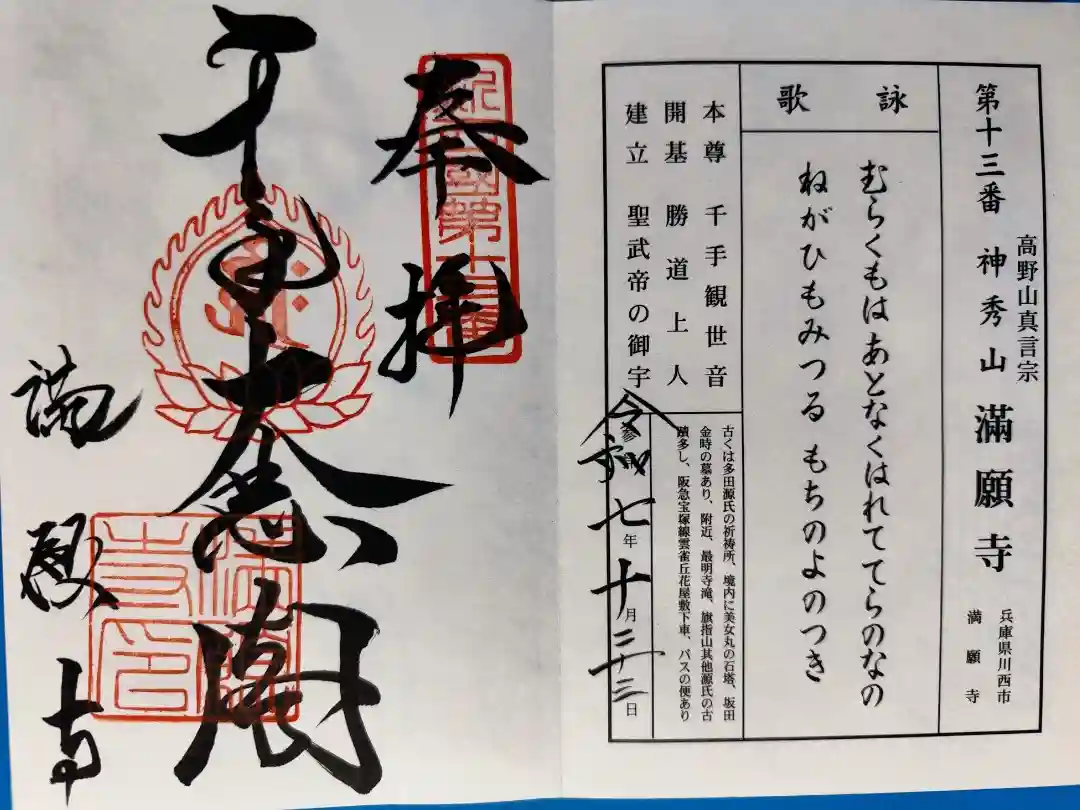 高野山真言宗
第十三番 神秀山 滿願寺
兵庫県川西市
満願寺
詠歌
むらくもはあとなくはれててらのなの
ねがひもみつるもちのよのつき
本尊 千手観世音
開基 勝道上人
建立 聖武帝の御宇
古くは多田源氏の祈祷所、境内に美女丸の石塔、坂田
金時の墓あり、附近、最明寺滝、旗指山其他源氏の古
蹟多し、阪急宝塚線雲雀丘花屋敷下車、バスの便あり
令和七年十月二十三日
奉拝
國第十三番
千手大悲閣
満願寺
滿願寺印